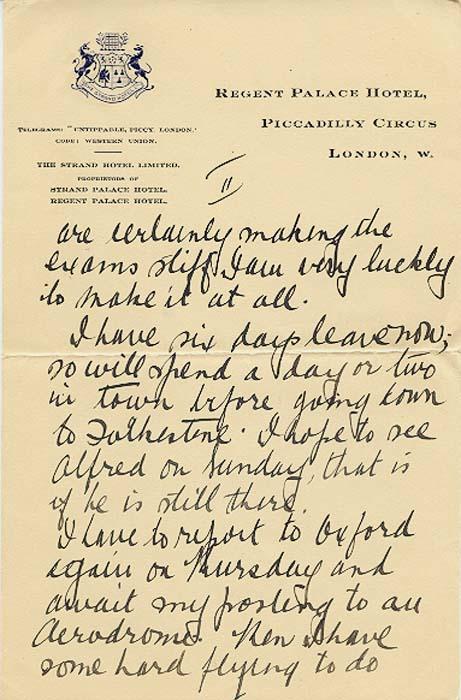 REGENT PALACE HOTEL,
PICCADILLY CIRCUS
LONDON, W.
TELEGRAMS: "UNTIPPABLE, PICCY, LONDON."
CODE: WESTERN UNION.
THE STRAND HOTEL LIMITED.
PROPRIETORS OF
STRAND PALACE HOTEL.
REGENT PALACE HOTEL.
II
are certainly making the
exams stiff I am very luckly
to make it at all.
I have six days leave now,
so will spend a day or two
in town before going down
to Folkestone. I hope to see
Alfred on Sunday, that is
if he is still there.
I have to report to Oxford
again on Thursday and
await my posting to an
Aerodrome. Then I have
some hard flying to do